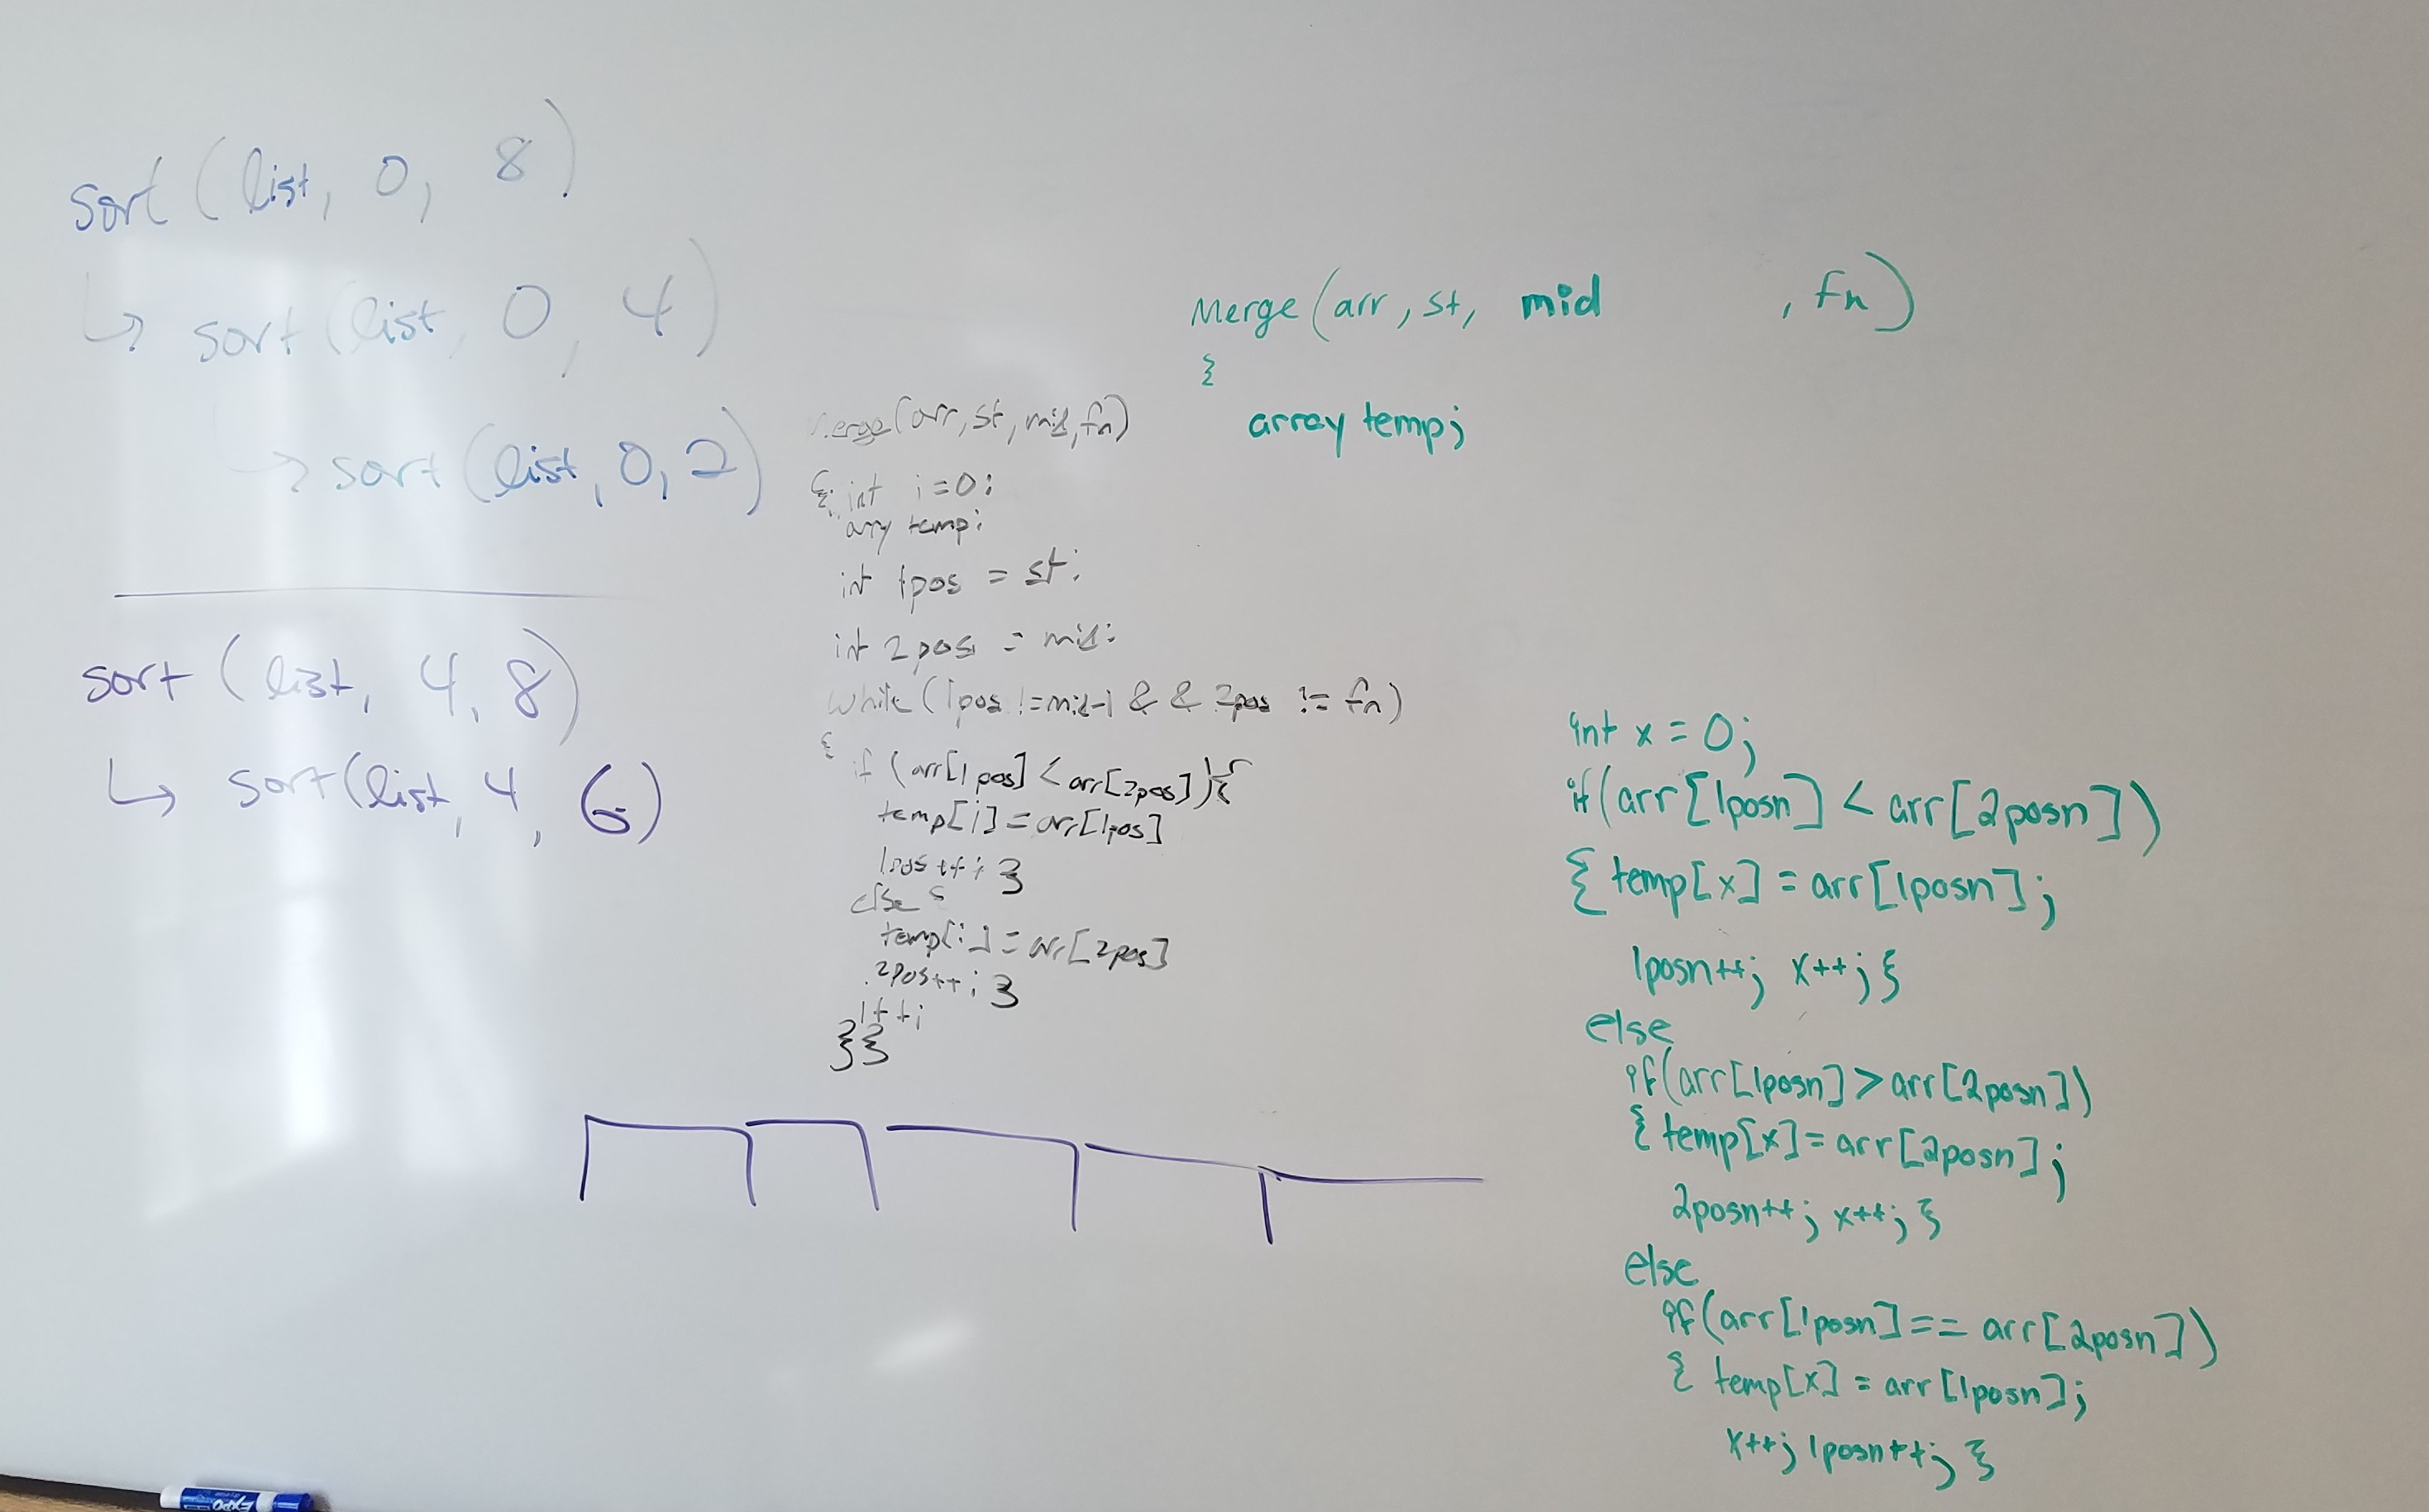 sort (list, 0, 8)
↳ sort (list, 0, 4)
↳ sort (list, 0, 2)
sort (list, 4, 8)
↳ sort (list, 4, 6)
Merge(arr, st, mid, fn)
{ int i = 0;
arry temp;
int 1pos = st;
int 2pos = mid;
while (1pos != mid-1 && 2pos != fn)
{
if (arr[1pos] < arr[2pos]){
temp[i] = arr[1pos]
1pos++; }
else {
temp[i] = arr[2pos]
2pos++; }
i++;
}}
Merge (arr, st, mid , fn)
{
array temp;
int x = 0;
if (arr[1posn] < arr[2posn])
{ temp[x] = arr[1posn];
1posn++; x++; }
else
if (arr[1posn] > arr[2posn])
{ temp[x] = arr[2posn];
2posn++; x++; }
else
if (arr[1posn] == arr[2posn])
{ temp[x] = arr[1posn];
x++; 1posn++; }
EXPO